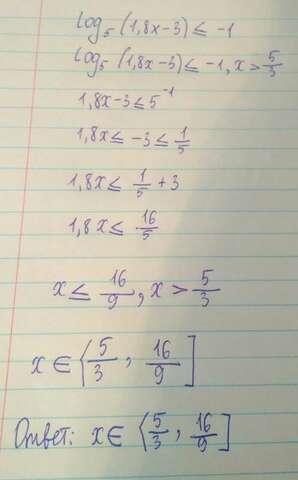 log₅(1,8x-3) ≤ -1
log₅(1,8x-3) ≤ -1, x > 5/3
1,8x-3 ≤ 5⁻¹
1,8x ≤ -3 ≤ 1/5
1,8x ≤ 1/5 + 3
1,8x ≤ 16/5
x ≤ 16/9, x > 5/3
x ∈ ⟨5/3, 16/9]
Ответ: x ∈ ⟨5/3, 16/9]